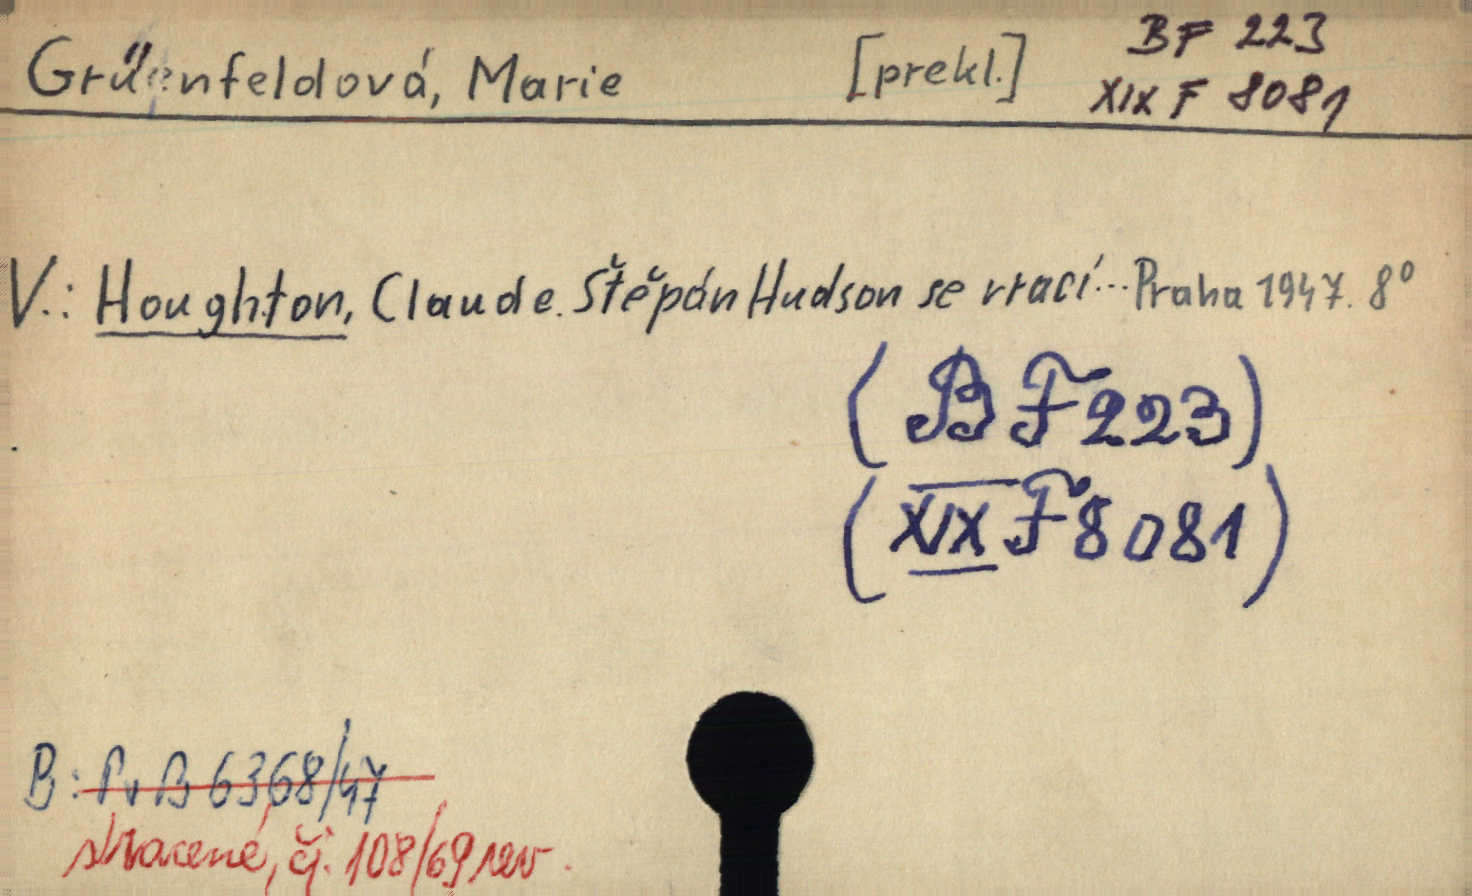 Grünfeldová, Marie [prekl.] BF 223
XIX F 8081
V.: Houghton, Claude. Štěpán Hudson se vrací... Praha 1947. 8°
(BF 223)
(XIX F 8081)
B: Pv B 6368/47
ztracené, čj. 108/69 rev.